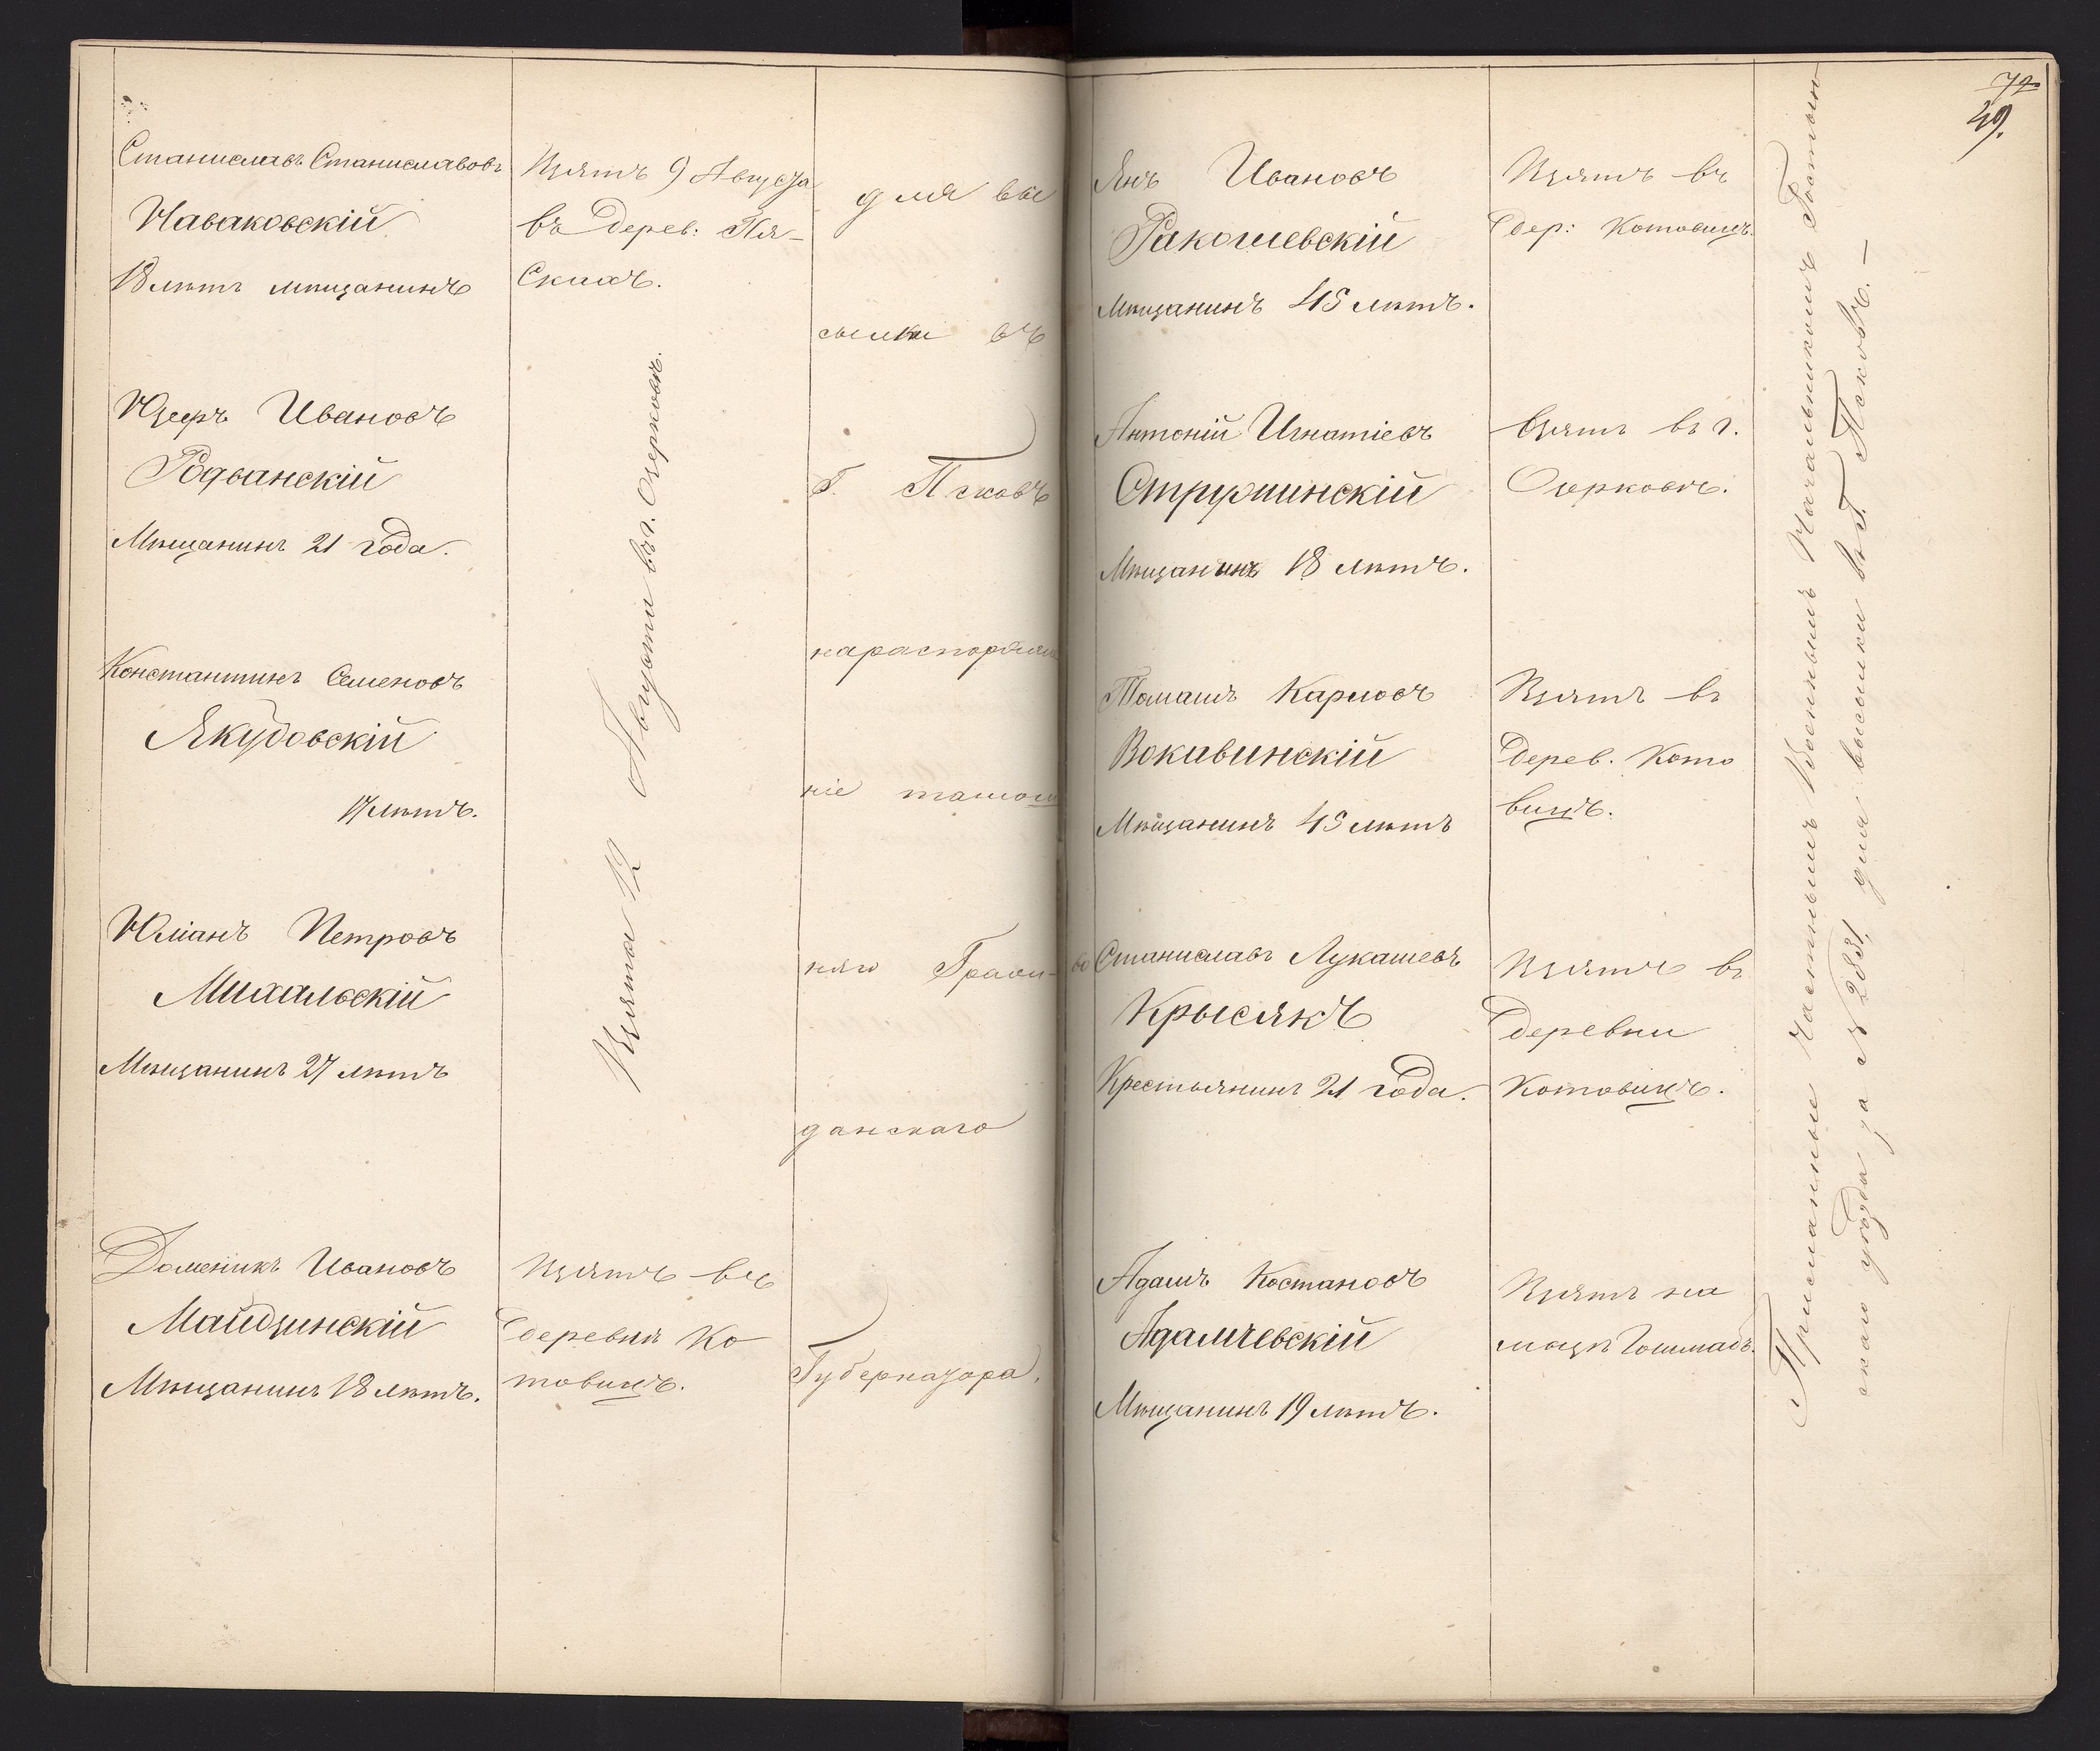 Станиславъ Станиславовъ
Наваковскій
18 лѣтъ мѣщанинъ
Взятъ 9 Августа
въ дерев: Пя-
скахъ.
Юзефъ Ивановъ
Родванскій
Мѣщанинъ 21 года.
Константинъ Семеновъ
Якубовскій
17 лѣтъ.
Юліанъ Петровъ
Михальскій
Мѣщанинъ 27 лѣтъ
Взяты 12 Августа въ г. Озерковѣ.
Доменикъ Ивановъ
Майдзинскій
Мѣщанинъ 18 лѣтъ.
Взятъ въ
деревнѣ Ко
товицъ.
для вы
сылки въ
Г. Псковъ
на распоряже
ніе тамош
няго Граж-
данскаго
Губернатора.
72
49.
Янъ Ивановъ
Ракочевскій
Мѣщанинъ 45 лѣтъ.
Взятъ въ
дер: Котовицъ.
Антоній Игнатіевъ
Струминскій
Мѣщанинъ 18 лѣтъ.
Взятъ въ г.
Озерковѣ.
Томашъ Карловъ
Вокавинскій
Мѣщанинъ 45 лѣтъ
Взятъ въ
дерев. Кото
вицъ.
Станиславъ Лукашевъ
Крысякъ
Крестьянинъ 21 года.
Взятъ въ
деревни
Котовицъ.
Адамъ Костановъ
Адамчевскій
Мѣщанинъ 19 лѣтъ.
Взятъ на
Присланные Частнымъ Военнымъ Начальникомъ Гостын
скаго уѣзда за N 2831, для высылки въ Г. Псковъ. —